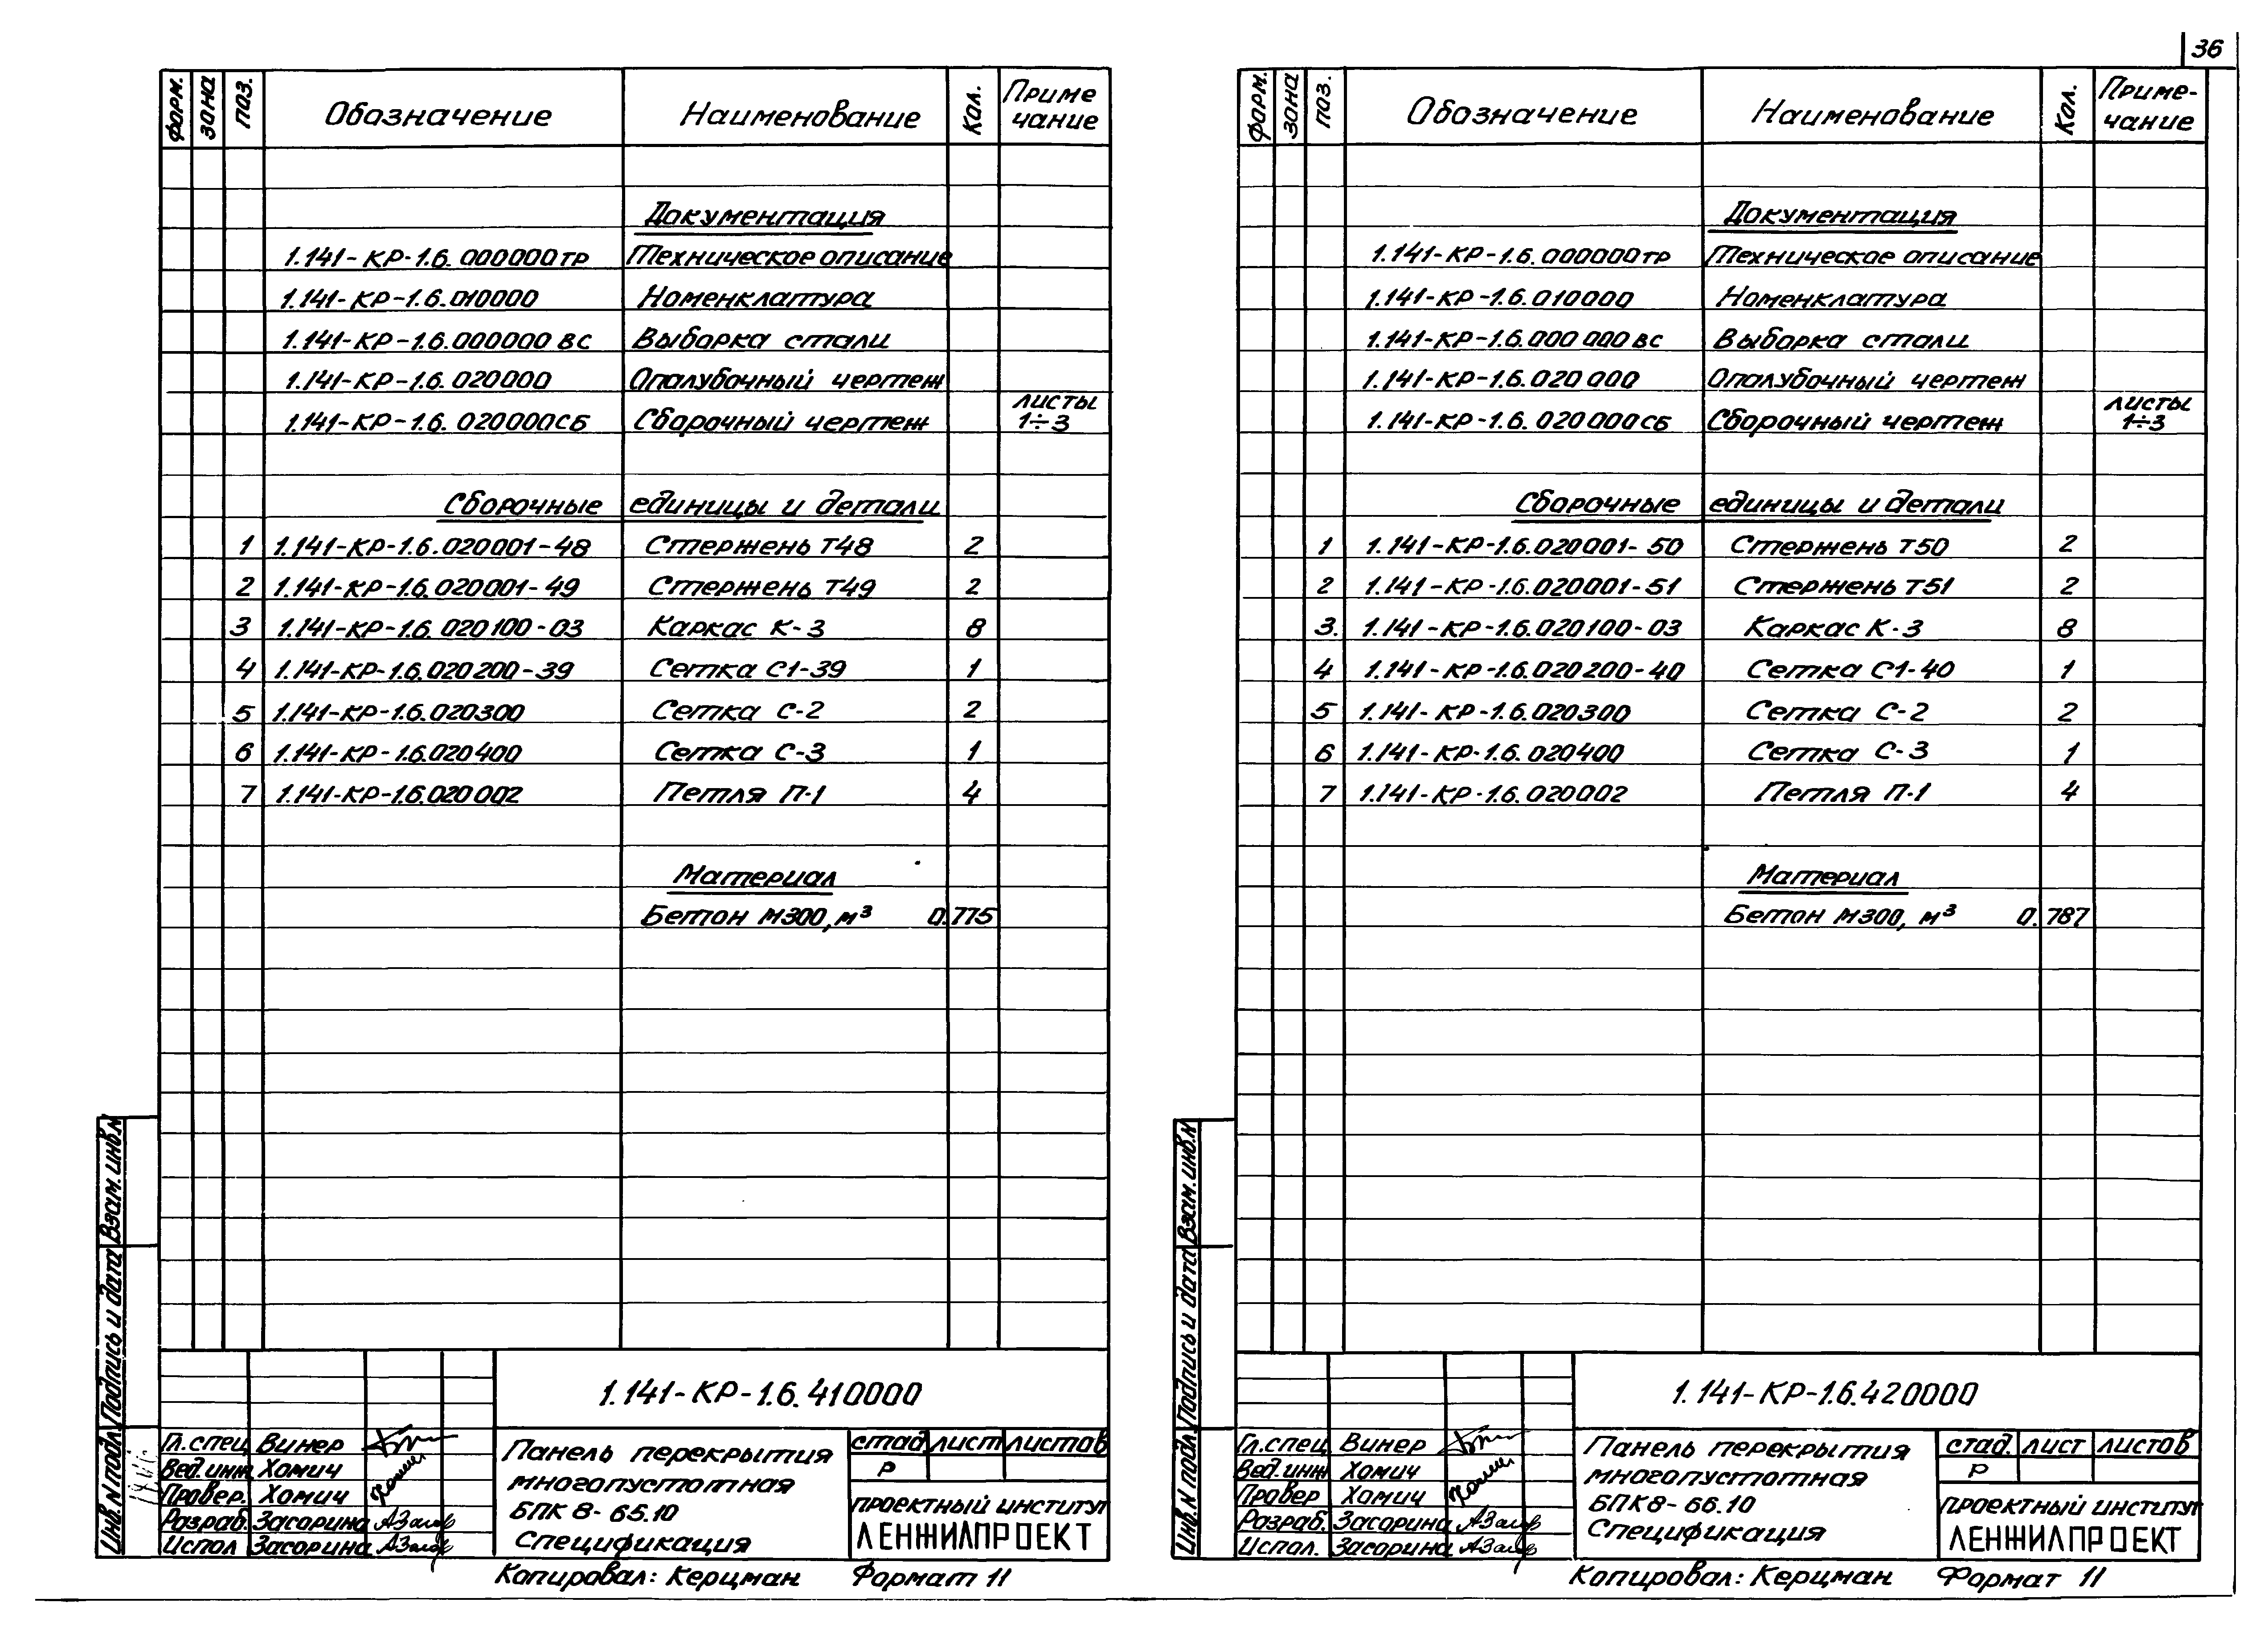 36
форм. зона поз. Обозначение Наименование Кол. Приме
чание
Документация
1.141-КР-1.6.000000ТР Техническое описание
1.141-КР-1.6.010000 Номенклатура
1.141-КР-1.6.000000 ВС Выборка стали
1.141-КР-1.6.020000 Опалубочный чертеж
1.141-КР-1.6.020000СБ Сборочный чертеж листы
1÷3
Сборочные единицы и детали
1 1.141-КР-1.6.020001-48 Стержень Т48 2
2 1.141-КР-1.6.020001-49 Стержень Т49 2
3 1.141-КР-1.6.020100-03 Каркас К-3 8
4 1.141-КР-1.6.020200-39 Сетка С1-39 1
5 1.141-КР-1.6.020300 Сетка С-2 2
6 1.141-КР-1.6.020400 Сетка С-3 1
7 1.141-КР-1.6.020002 Петля П-1 4
Материал
Бетон М300, м³ 0.775
Взам. инв.N
Подпись и дата
Инв. N подл.
1.141-КР-1.6.410000
Гл. спец Винер
Вед. инж Хомич
Провер. Хомич
Разраб. Засорина
Испол Засорина
Панель перекрытия
многопустотная
БПК 8-65.10
Спецификация
стад. лист листов
Р
ПРОЕКТНЫЙ ИНСТИТУТ
ЛЕНЖИЛПРОЕКТ
Копировал: Керцман Формат 11
форм. зона поз. Обозначение Наименование Кол. Приме-
чание
Документация
1.141-КР-1.6.000000ТР Техническое описание
1.141-КР-1.6.010000 Номенклатура
1.141-КР-1.6.000 000 ВС Выборка стали
1.141-КР-1.6.020 000 Опалубочный чертеж
1.141-КР-1.6.020 000СБ Сборочный чертеж листы
1÷3
Сборочные единицы и детали
1 1.141-КР-1.6.020001-50 Стержень Т50 2
2 1.141-КР-1.6.020001-51 Стержень Т51 2
3. 1.141-КР-1.6.020100-03 Каркас К-3 8
4 1.141-КР-1.6.020200-40 Сетка С1-40 1
5 1.141-КР-1.6.020300 Сетка С-2 2
6 1.141-КР-1.6.020400 Сетка С-3 1
7 1.141-КР-1.6.020002 Петля П-1 4
Материал
Бетон М300, м³ 0.787
Взам. инв.N
Подпись и дата
Инв. N подл.
1.141-КР-1.6.420000
Гл.спец. Винер
Вед. инж Хомич
Провер Хомич
Разраб. Засорина
Испол. Засорина
Панель перекрытия
многопустотная
БПК8-66.10
Спецификация
стад. лист листов
Р
ПРОЕКТНЫЙ ИНСТИТУТ
ЛЕНЖИЛПРОЕКТ
Копировал: Керцман Формат 11